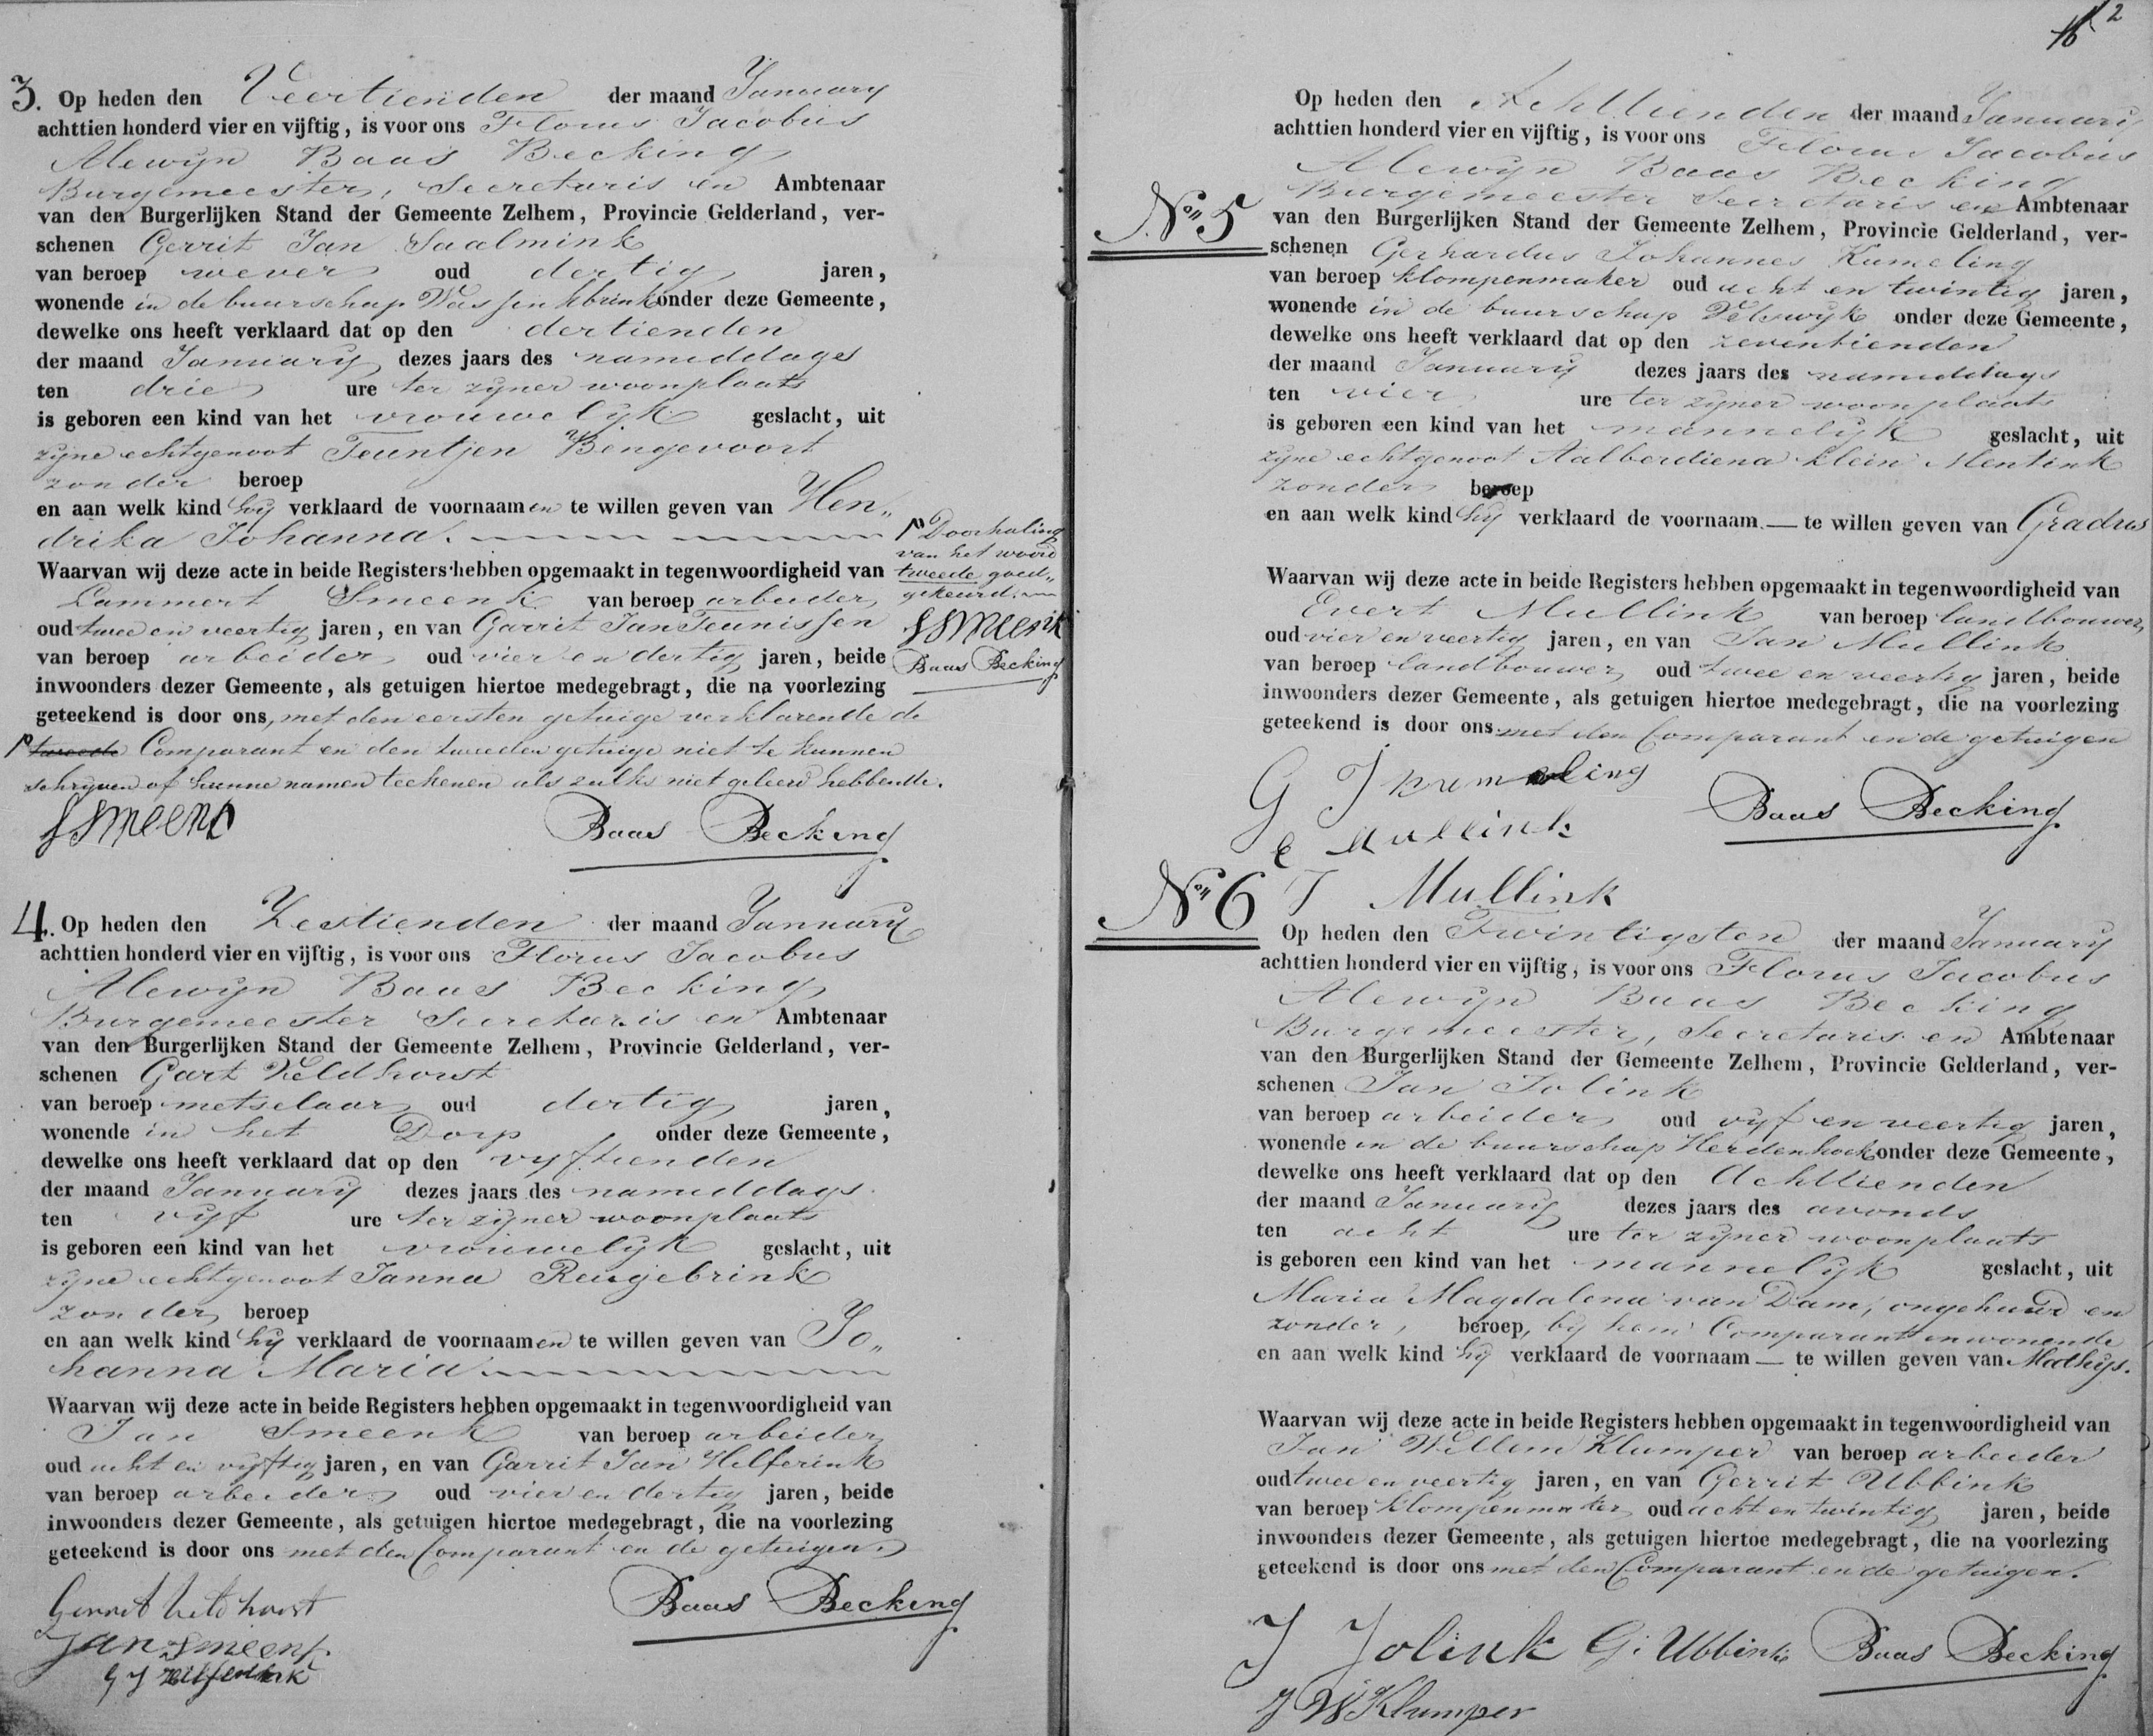 3. Op heden den Veertienden der maand January
achttien honderd vier en vijftig, is voor ons Florus Jacobus
Alewyn Baas Becking
Burgemeester, Secretaris en Ambtenaar
van den Burgerlijken Stand der Gemeente Zelhem, Provincie Gelderland, ver-
schenen Gerrit Jan Saalmink
van beroep wever oud dertig jaren,
wonende in de buurschap Wassinkbrink onder deze Gemeente,
dewelke ons heeft verklaard dat op den dertienden
der maand January dezes jaars des namiddags
ten drie ure ter zyner woonplaats
is geboren een kind van het vrouwelyk geslacht, uit
zyne echtgenoot Teuntjen Bengevoort
zonder beroep
en aan welk kind hy verklaard de voornaamen te willen geven van Hen„
drika Johanna.
Waarvan wij deze acte in beide Registers hebben opgemaakt in tegenwoordigheid van
Lammert Smeenk van beroep arbeider
oud twee en veertig jaren, en van Garrit Jan Teunissen
van beroep arbeider oud vier en dertig jaren, beide
inwoonders dezer Gemeente, als getuigen hiertoe medegebragt, die na voorlezing
geteekend is door ons, met den eersten getuige verklarende de
tweede Comparant en den tweeden getuige niet te kunnen
schryven of hunne namen teekenen als zulks niet geleerd hebbende.
Doorhaling
van het woord
tweede goed„
gekeurd.
L Smeenk
Baas Becking
L Smeenk Baas Becking
4. Op heden den Zestienden der maand January
achttien honderd vier en vijftig, is voor ons Florus Jacobus
Alewyn Baas Becking
Burgemeester Secretaris en Ambtenaar
van den Burgerlijken Stand der Gemeente Zelhem, Provincie Gelderland, ver-
schenen Gart Veldhorst
van beroep metselaar oud dertig jaren,
wonende in het Dorp onder deze Gemeente,
dewelke ons heeft verklaard dat op den vyftienden
der maand January dezes jaars des namiddags
ten vyf ure ter zyner woonplaats
is geboren een kind van het vrouwelyk geslacht, uit
zyne echtgenoot Janna Reugebrink
zonder beroep
en aan welk kind hy verklaard de voornaamen te willen geven van Jo„
hanna Maria.
Waarvan wij deze acte in beide Registers hebben opgemaakt in tegenwoordigheid van
Jan Smeenk van beroep arbeider
oud acht en vyftig jaren, en van Garrit Jan Hilferink
van beroep arbeider oud vier en dertig jaren, beide
inwoonders dezer Gemeente, als getuigen hiertoe medegebragt, die na voorlezing
geteekend is door ons met den Comparant en de getuigen.
Gerrit Veldhorst Baas Becking
Jan Smeenk
G J Hilferink
2
Op heden den Achttienden der maand January
achttien honderd vier en vijftig, is voor ons Florus Jacobus
Alewyn Baas Becking
Burgemeester Secretaris en Ambtenaar
No 5
van den Burgerlijken Stand der Gemeente Zelhem, Provincie Gelderland, ver-
schenen Gerhardus Johannes Kumeling
van beroep klompenmaker oud acht en twintig jaren,
wonende in de buurschap Velswyk onder deze Gemeente,
dewelke ons heeft verklaard dat op den zeventienden
der maand January dezes jaars des namiddags
ten vier ure ter zyner woonplaats
is geboren een kind van het mannelyk geslacht, uit
zyne echtgenoot Aalberdiena klein Mentink
zonder beroep
en aan welk kind hy verklaard de voornaam — te willen geven van Gradus
Waarvan wij deze acte in beide Registers hebben opgemaakt in tegenwoordigheid van
Evert Mullink van beroep landbouwer,
oud vier en veertig jaren, en van Jan Mullink
van beroep landbouwer oud twee en veertig jaren, beide
inwoonders dezer Gemeente, als getuigen hiertoe medegebragt, die na voorlezing
geteekend is door ons met den Comparant en de getuigen
G J kumeling Baas Becking
E Mullink
J Mullink
No 6
Op heden den Twintigsten der maand January
achttien honderd vier en vijftig, is voor ons Florus Jacobus
Alewyn Baas Becking
Burgemeester, Secretaris en Ambtenaar
van den Burgerlijken Stand der Gemeente Zelhem, Provincie Gelderland, ver-
schenen Jan Jolink
van beroep arbeider oud vyf en veertig jaren,
wonende in de buurschap Herdenhoek onder deze Gemeente,
dewelke ons heeft verklaard dat op den Achttienden
der maand January dezes jaars des avonds
ten acht ure ter zyner woonplaats
is geboren een kind van het mannelyk geslacht, uit
Maria Magdalena van Dam, ongehuwd en
zonder, beroep, by hem Comparant inwonende
en aan welk kind hy verklaard de voornaam — te willen geven van Mathys.
Waarvan wij deze acte in beide Registers hebben opgemaakt in tegenwoordigheid van
Jan Willem Klumper van beroep arbeider
oud twee en veertig jaren, en van Gerrit Ubbink
van beroep klompenmaker oud acht en twintig jaren, beide
inwoonders dezer Gemeente, als getuigen hiertoe medegebragt, die na voorlezing
geteekend is door ons met den Comparant en de getuigen.
J Jolink G. Ubbink Baas Becking
J W Klumper